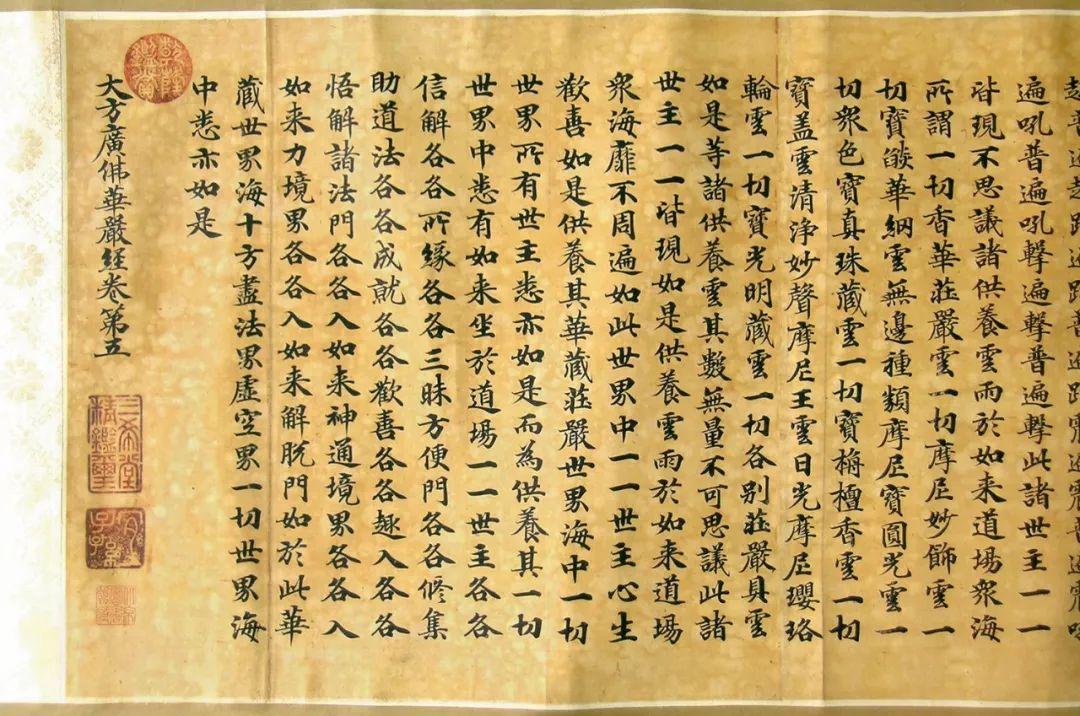 遍吼普遍吼擊遍擊普遍擊此諸世主一一
皆現不思議諸供養雲雨於如来道場衆海
所謂一切香華莊嚴雲一切摩尼妙飾雲一
切寶燄華網雲無邊種類摩尼寶圓光雲一
切衆色寶真珠藏雲一切寶栴檀香雲一切
寶盖雲清淨妙聲摩尼王雲日光摩尼瓔珞
輪雲一切寶光明藏雲一切各别莊嚴具雲
如是等諸供養雲其數無量不可思議此諸
世主一一皆現如是供養雲雨於如来道場
衆海靡不周遍如此世界中一一世主心生
歡喜如是供養其華藏莊嚴世界海中一切
世界所有世主悉亦如是而為供養其一切
世界中悉有如来坐於道場一一世主各各
信解各各所緣各各三昧方便門各各修集
助道法各各成就各各歡喜各各趣入各各
悟解諸法門各各入如来神通境界各各入
如来力境界各各入如来解脱門如於此華
藏世界海十方盡法界虛空界一切世界海
中悉亦如是
大方廣佛華嚴經卷第五
乾隆鑑賞
三希堂精鑑璽
宜子孫